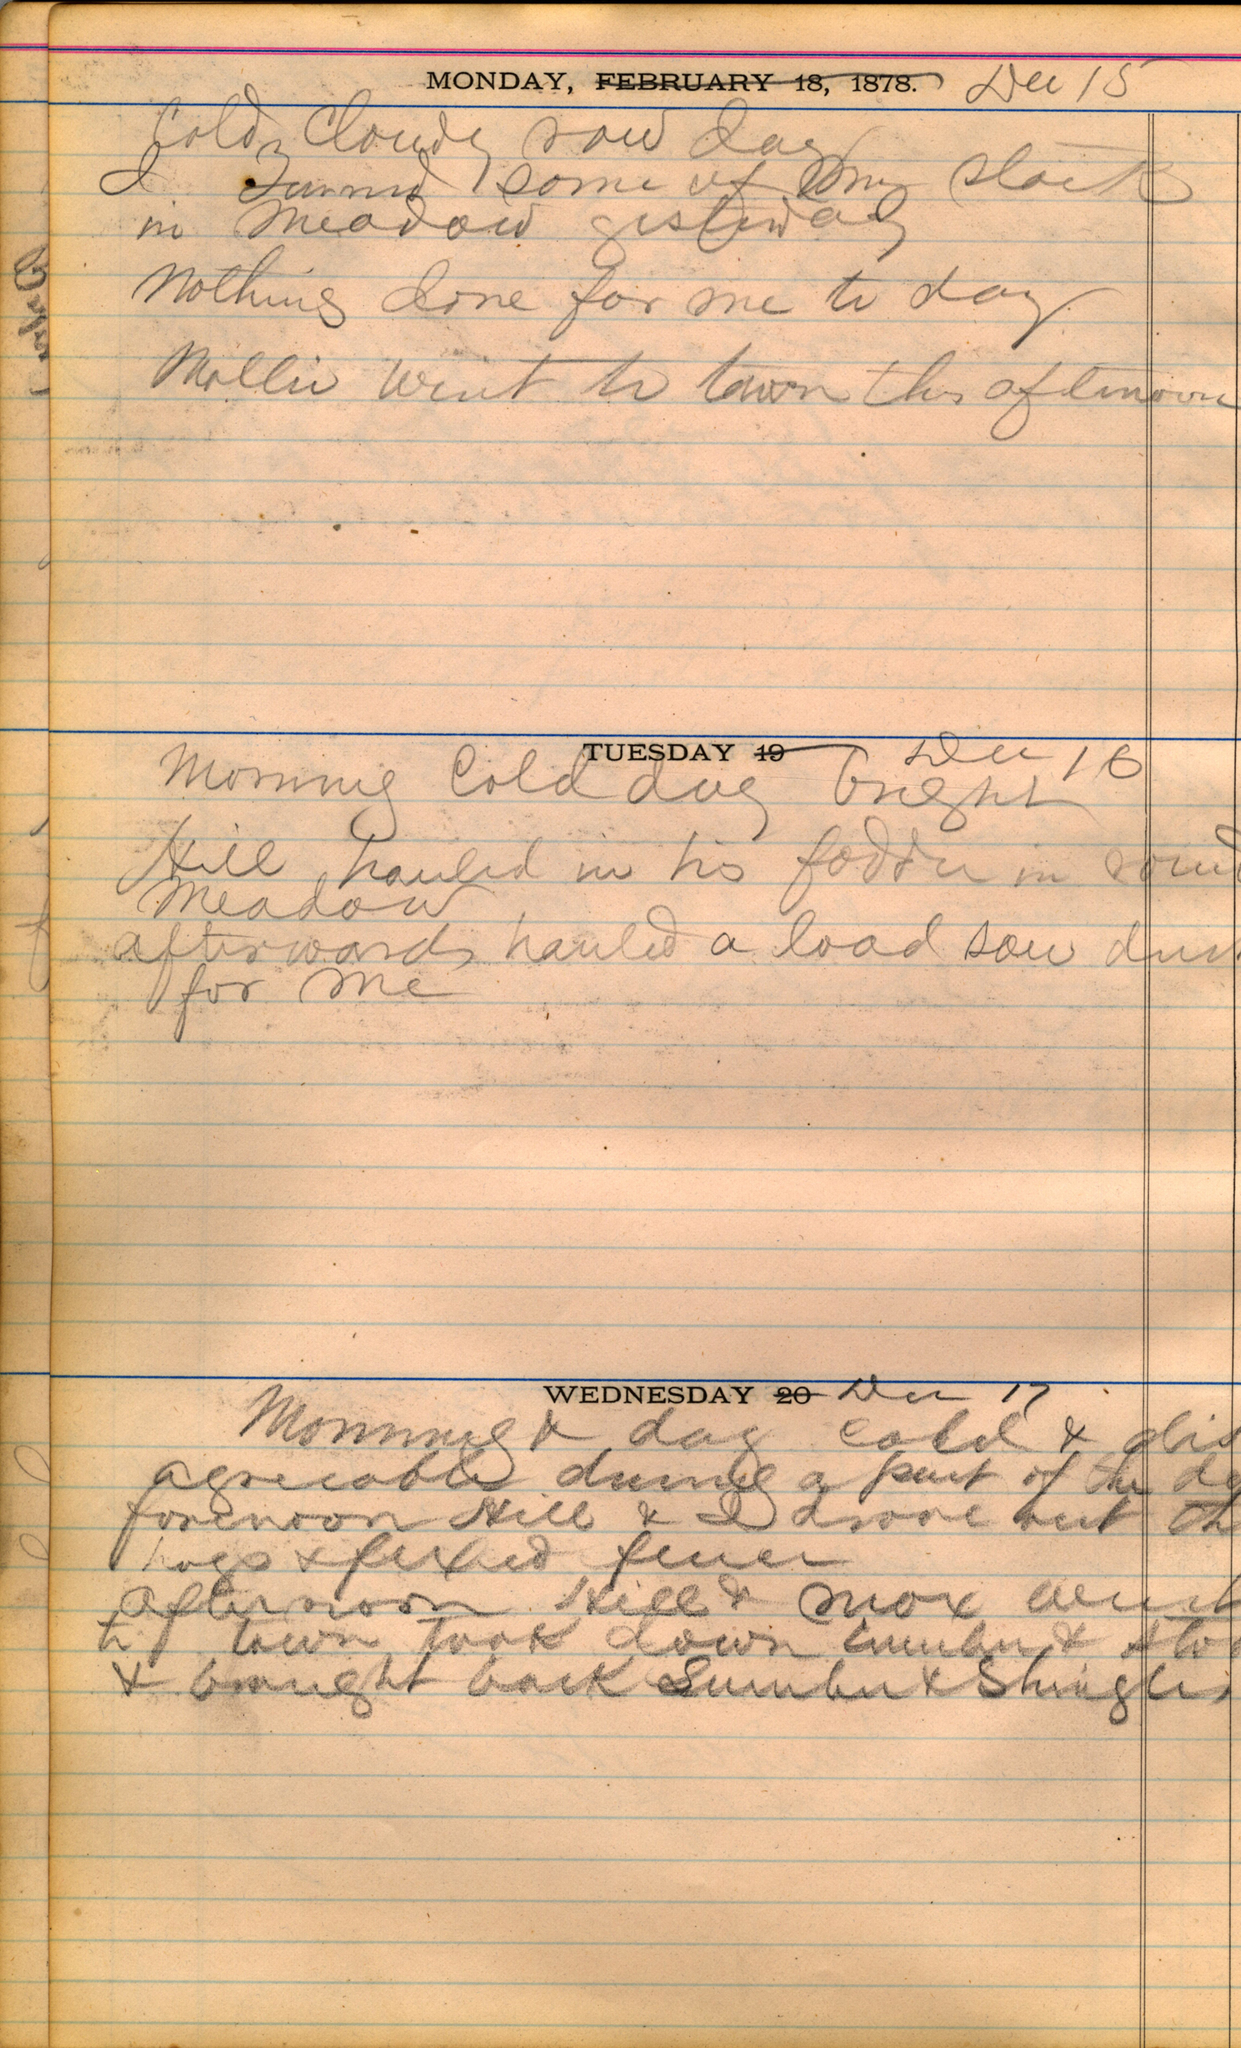 MONDAY, FEBRUARY 18, 1878. Dec 15
Cold Cloudy raw day
I Turned some of my stock
in Meadow yesterday
Nothing done for me to day
Mollie went to town this afternoon
TUESDAY 19 Dec 16
Morning Cold day bright
Hill hauled in his fodder in
Meadow
afterwards hauled a load saw dus
for me
WEDNESDAY 20 Dec 17
Morning & day cold & dis
agreeable during a part of the da
forenoon Hill & I drove out th
hogs & fixed fence
afternoon Hill & Mox went
to town took down lumber &
& brought back Lumber & Shingles